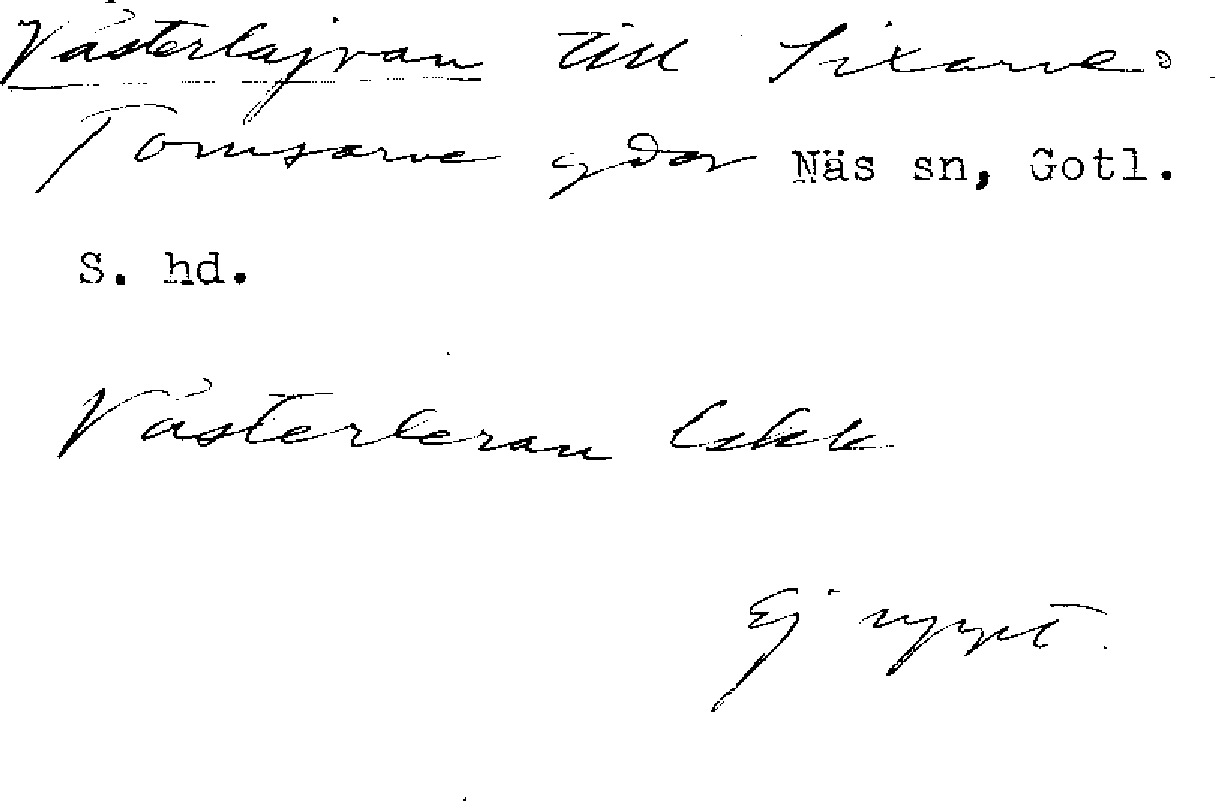 Västerlajvan till Sixarve o
Tomsarve gdar Näs sn, Gotl.
S. hd.
Västerleran Eskk
Ej uppt.